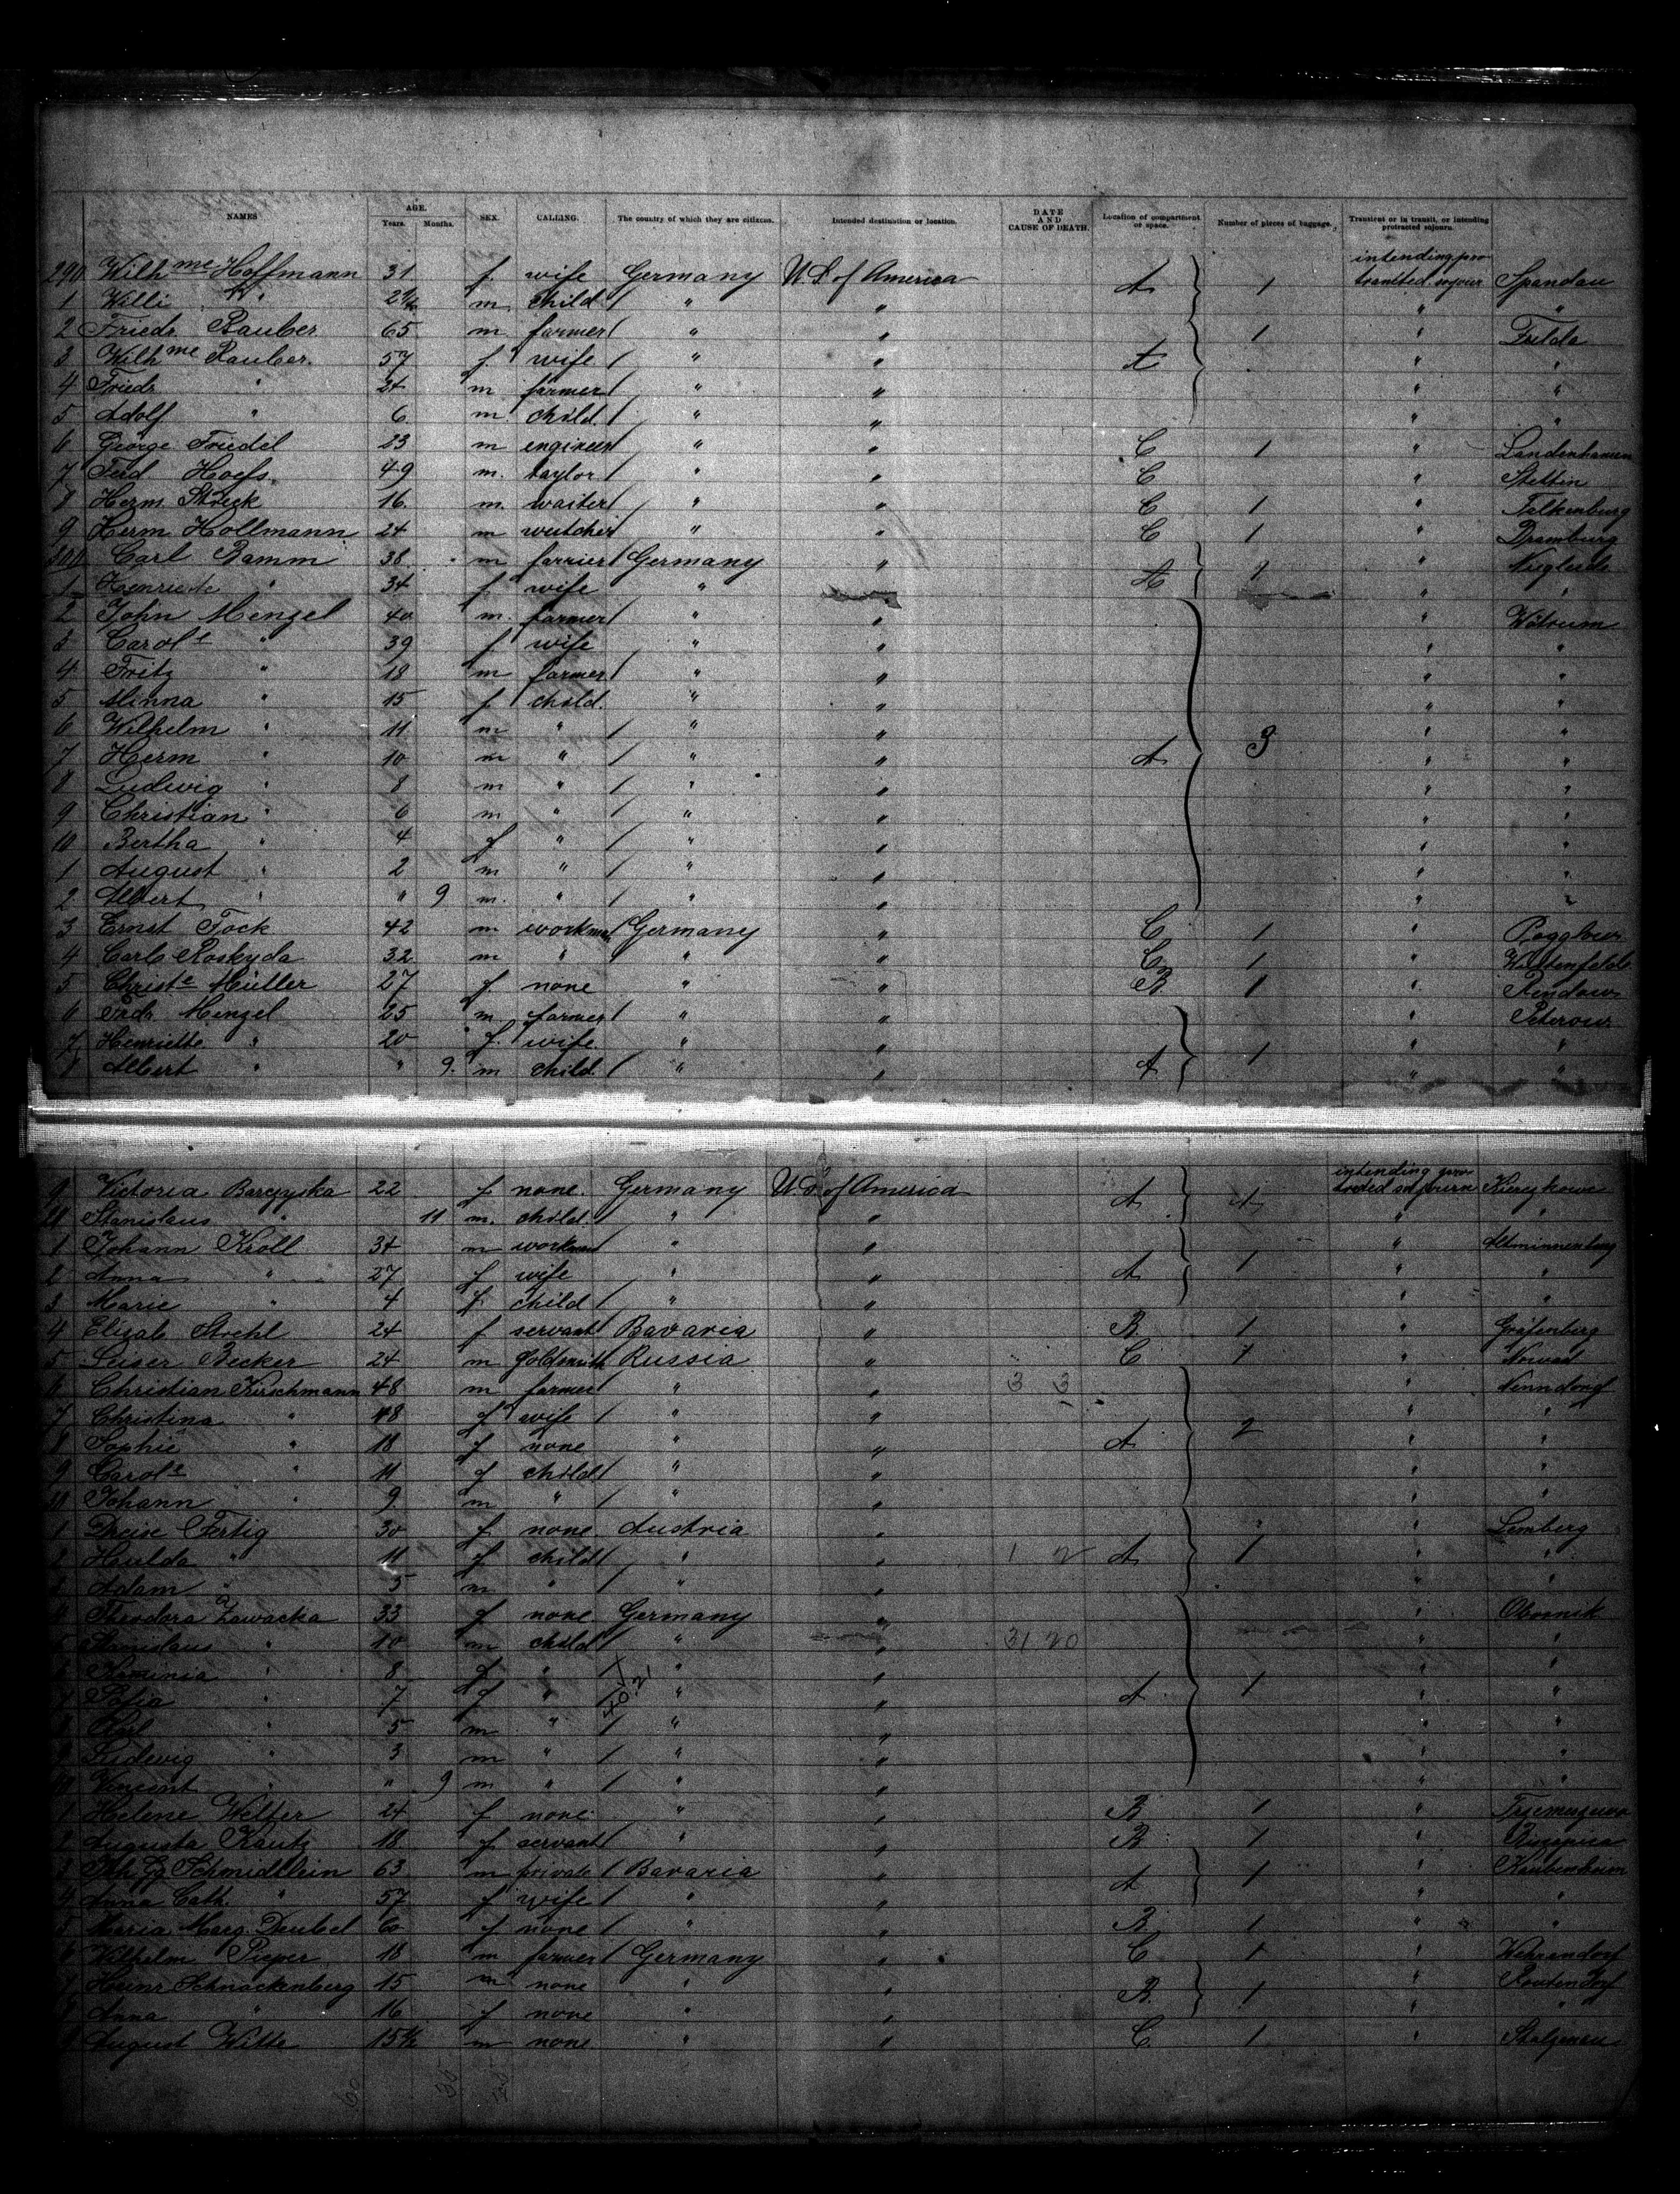 NAMES AGE. Years. Months. SEX. CALLING. The country of which they are citizens. Intended destination or location. DATE AND CAUSE OF DEATH. Location of compartment or space. Number of pieces of baggage. Transient or in transit, or intending protracted sojourn.
290 Wilhme Hoffmann 31 f wife Germany U.S. of America A 1 intending pro tracted sojour Spandau
1 Willi " m child / " " " "
2 Friedr. Rauber 65 m farmer / " " 1 "
3 Wilhme Rauber. 57 f wife / " " A " "
4 Friedr. " 24 m farmer / " " " "
5 Adolf " 6 m child. / " " " "
6 George Friedel 23 m engineer / " " C 1 "
7 Ferd Hoefs. 49 m. taylor / " " C " Stettin
8 Herm. Streck 16. m. waiter / " " C 1 " Falkenburg
9 Herm Hollmann 24 m / " " C 1 " Dramburg
300 Carl Bamm 38. m farrier / Germany " A "
1 Henriette " 34 f wife " " "
2 John Menzel 40 m. farmer / " " "
3 Carole " 39 f wife " " " "
4 Fritz " 18 m farmer / " " " "
5 Minna " 15 f child. " " " "
6 Wilhelm " 11 m " / " " " "
7 Herm " 10 m " / " " A 3 " "
8 Ludwig " 8 m " / " " " "
9 Christian " 6 m " / " " " "
10 Bertha " 4 f " / " " " "
1 August " 2 m " / " " " "
2 Albert " " 9 m. " / " " " "
3 Ernst Fock 42 m workman / Germany " C 1 "
4 Carl Roskyda 32 m " " " C 1 "
5 Christe Müller 27 f. none " " B 1 "
6 Frdr. Menzel 25 m farmer / " " "
7 Henriette " 20 f. wife. " " " "
8 Albert " " 9. m child. / " " A 1 " "
9 Victoria Barczyska 22 f none. Germany U.S. of America A intending pro tracted sojourn
Stanislaus " 11 m. child / " " " "
1 Johann Kroll 34 m workman " " 1 "
2 Anna " 27 f wife " " A " "
3 Marie " 4 f child / " " " "
4 Elisab. Strehl 24 f servant / Bavaria " B 1 " Gräfenberg
5 Leiser Becker 24 m goldsmith Russia " C 1 "
6 Christian Kirschmann 48 m farmer / " " 3 3 "
7 Christina " 48 f wife / " " 2 " "
8 Sophie " 18 f none " " A " "
9 Carole " 11 f child / " " " "
Johann " 9. m " / " " " "
1 Fertig 30 f none. Austria " " Lemberg
2 " 11 f child / " " 1 2 A 1 " "
3 Adam " 5 m " / " " " "
4 Theodora Zawacka 33 f none. Germany " " Obornik
5 Stanislaus " 10 m child / " " 31 20 " "
6 " 8 f " / " " " "
7 Sofia " 7 f " / " " A 1 " "
8 " 5 m " / " " " "
9 Ludewig " 3 m " / " " " "
Vincent " " 9 m " / " " " "
1 Helene Welfer 24 f none. " " B 1 "
2 Augusta Kautz 18 f servant / " " B 1 "
3 Joh Gg Schmidtlein 63 m private / Bavaria " A 1 " Kaubenheim
4 Anna Cath. " 57 f wife / " " " "
5 Maria Marg. Daubel 60 f none / " " B 1 " "
6 Wilhelm Pieper 18 m farmer / Germany " C 1 " Wehrendorf
7 Heinr Schnackenberg 15 m none " " B 1 "
8 Anna " 16 f none " " " "
9 August Witte 15½ m none " " C. 1 " Stolzenau